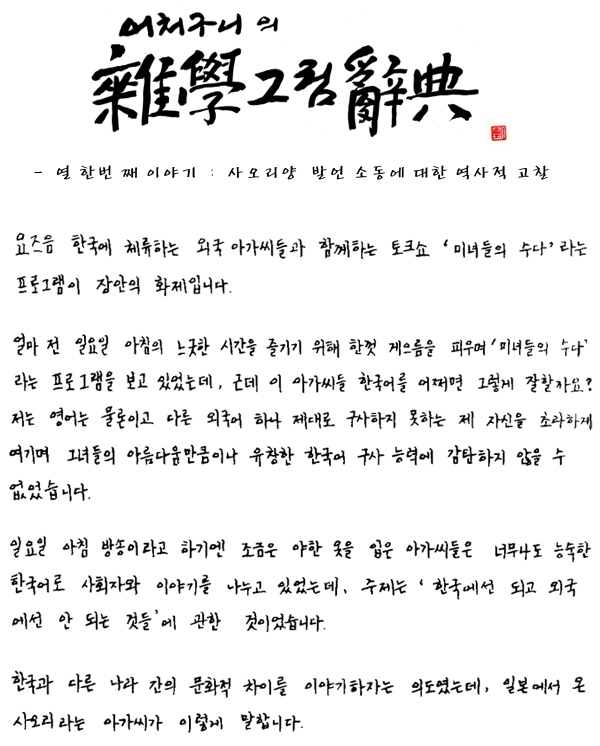 어처구니의
雜學그림辭典
- 열 한번 째 이야기 : 사오리양 발언 소동에 대한 역사적 고찰
요즈음 한국에 체류하는 외국 아가씨들과 함께하는 토크쇼 '미녀들의 수다'라는
프로그램이 장안의 화제입니다.
얼마 전 일요일 아침의 느긋한 시간을 즐기기 위해 한껏 게으름을 피우며 '미녀들의 수다'
라는 프로그램을 보고 있었는데, 근데 이 아가씨들 한국어를 어쩌면 그렇게 잘할까요?
저는 영어는 물론이고 다른 외국어 하나 제대로 구사하지 못하는 제 자신을 초라하게
여기며 그녀들의 아름다움만큼이나 유창한 한국어 구사 능력에 감탄하지 않을 수
없었습니다.
일요일 아침 방송이라고 하기엔 조금은 야한 옷을 입은 아가씨들은 너무나도 능숙한
한국어로 사회자와 이야기를 나누고 있었는데, 주제는 '한국에선 되고 외국
에선 안 되는 것들'에 관한 것이었습니다.
한국과 다른 나라 간의 문화적 차이를 이야기하자는 의도였는데, 일본에서 온
사오리라는 아가씨가 이렇게 말합니다.